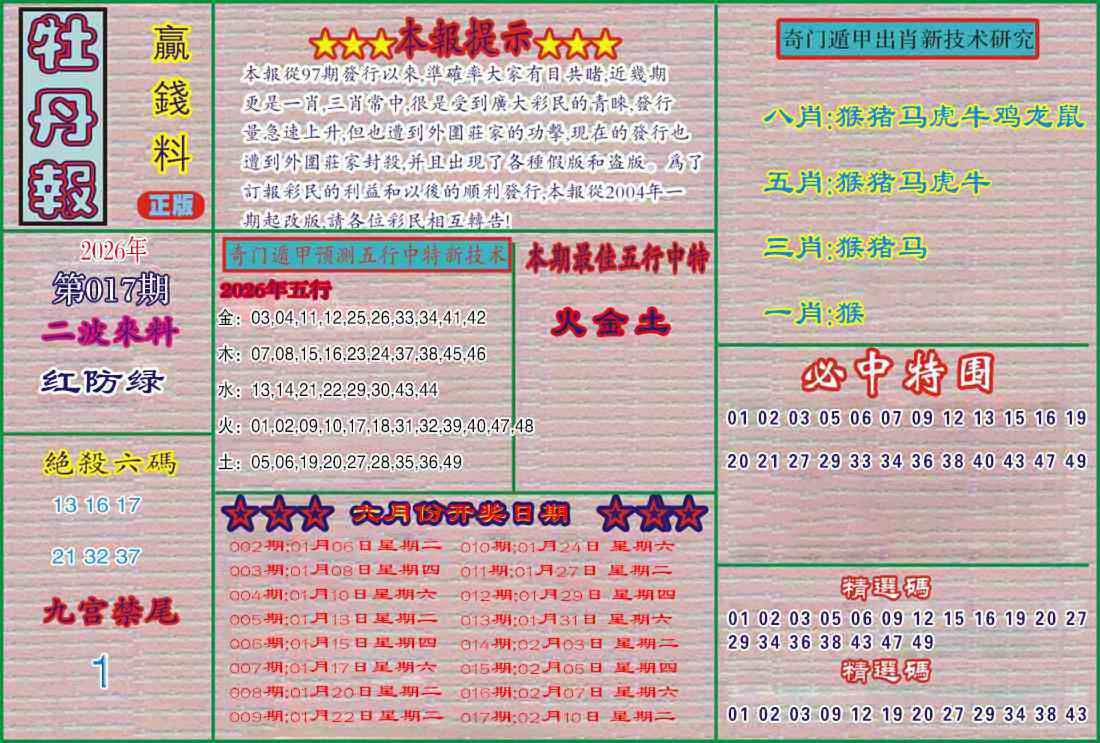 牡丹報
贏錢料
正版
★★★本報提示★★★
本報從97期發行以來,準確率大家有目共睹,近幾期
更是一肖,三肖常中,很是受到廣大彩民的青睞,發行
量急速上升,但也遭到外圍莊家的功擊,現在的發行也
遭到外圍莊家封殺,并且出現了各種假版和盗版。爲了
訂報彩民的利益和以後的順利發行,本報從2004年一
期起改版,請各位彩民相互轉告!
奇门遁甲出肖新技术研究
八肖:猴猪马虎牛鸡龙鼠
五肖:猴猪马虎牛
三肖:猴猪马
一肖:猴
2026年
第017期
二波來料
红防绿
奇门遁甲预测五行中特新技术
2026年五行
金：03,04,11,12,25,26,33,34,41,42
木：07,08,15,16,23,24,37,38,45,46
水：13,14,21,22,29,30,43,44
火：01,02,09,10,17,18,31,32,39,40,47,48
土：05,06,19,20,27,28,35,36,49
本期最佳五行中特
火金土
必中特围
01 02 03 05 06 07 09 12 13 15 16 19
20 21 27 29 33 34 36 38 40 43 47 49
絕殺六碼
13 16 17
21 32 37
九宫禁尾
1
☆☆☆ 六月份开奖日期 ☆☆☆
002期:01月06日星期二 010期:01月24日 星期六
003期:01月08日星期四 011期:01月27日 星期二
004期:01月10日星期六 012期:01月29日 星期四
005期:01月13日星期二 013期:01月31日 星期六
006期:01月15日星期四 014期:02月03日 星期二
007期:01月17日星期六 015期:02月05日 星期四
008期:01月20日星期二 016期:02月07日 星期六
009期:01月22日星期二 017期:02月10日 星期二
精選碼
01 02 03 05 06 09 12 15 16 19 20 27
29 34 36 38 43 47 49
精選碼
01 02 03 09 12 19 20 27 29 34 38 43